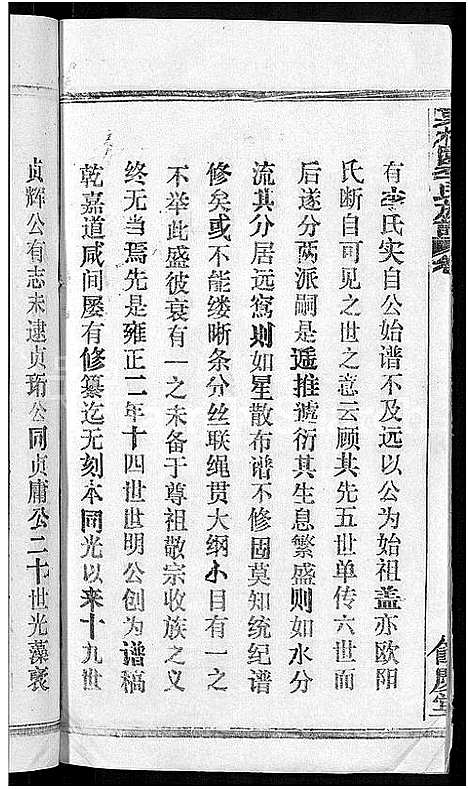 有李氏实自公始谱不及远以公为始祖盖亦欧阳
氏断自可见之世之意云顾其先五世单传六世而
后遂分两派嗣是递推递衍其生息繁盛则如水分
流其分居远窎则如星散布谱不修固莫知统纪谱
修矣或不能缕晰条分丝联绳贯大纲小目有一之
不举此盛彼衰有一之未备于尊祖敬宗收族之义
终无当焉先是雍正二年十四世世明公创为谱稿
乾嘉道咸间屡有修纂迄无刻本同光以来十九世
贞辉公有志未逮贞珩公同贞庸公二十世光藻裒
李氏族谱卷
余庆堂